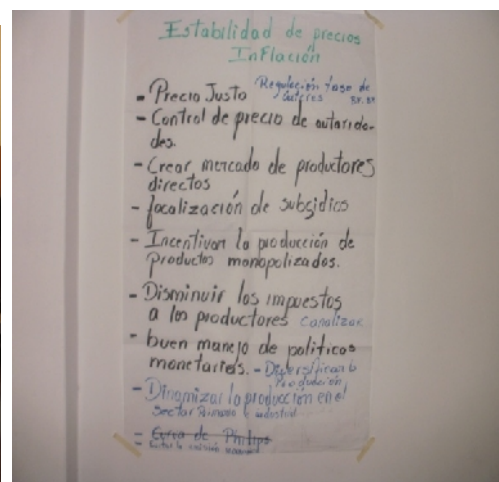 Estabilidad de precios
Inflación
- Precio Justo Regulación tasa de
- Control de precio de autorida-
des.
- Crear mercado de productores
directos
- focalización de subsidios
- Incentivar la producción de
Productos monopolizados.
- Disminuir los impuestos
a los productores Canalizar
- buen manejo de politicas
monetarias. - Diversificar la
Producción
- Dinamizar la producción en el
Sector Primario e industrial
- Curva de Philips